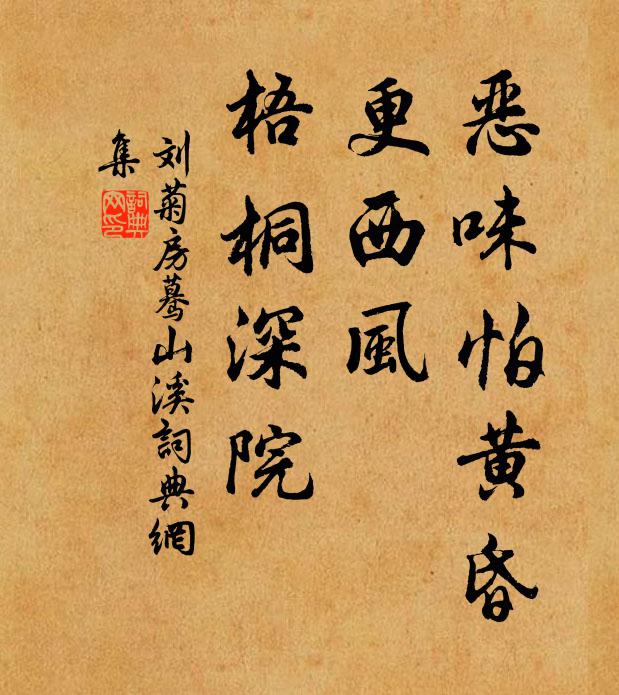 恶味怕黄昏
更西風
梧桐深院
刘菊房蓦山溪詞典網
集
詞典網印